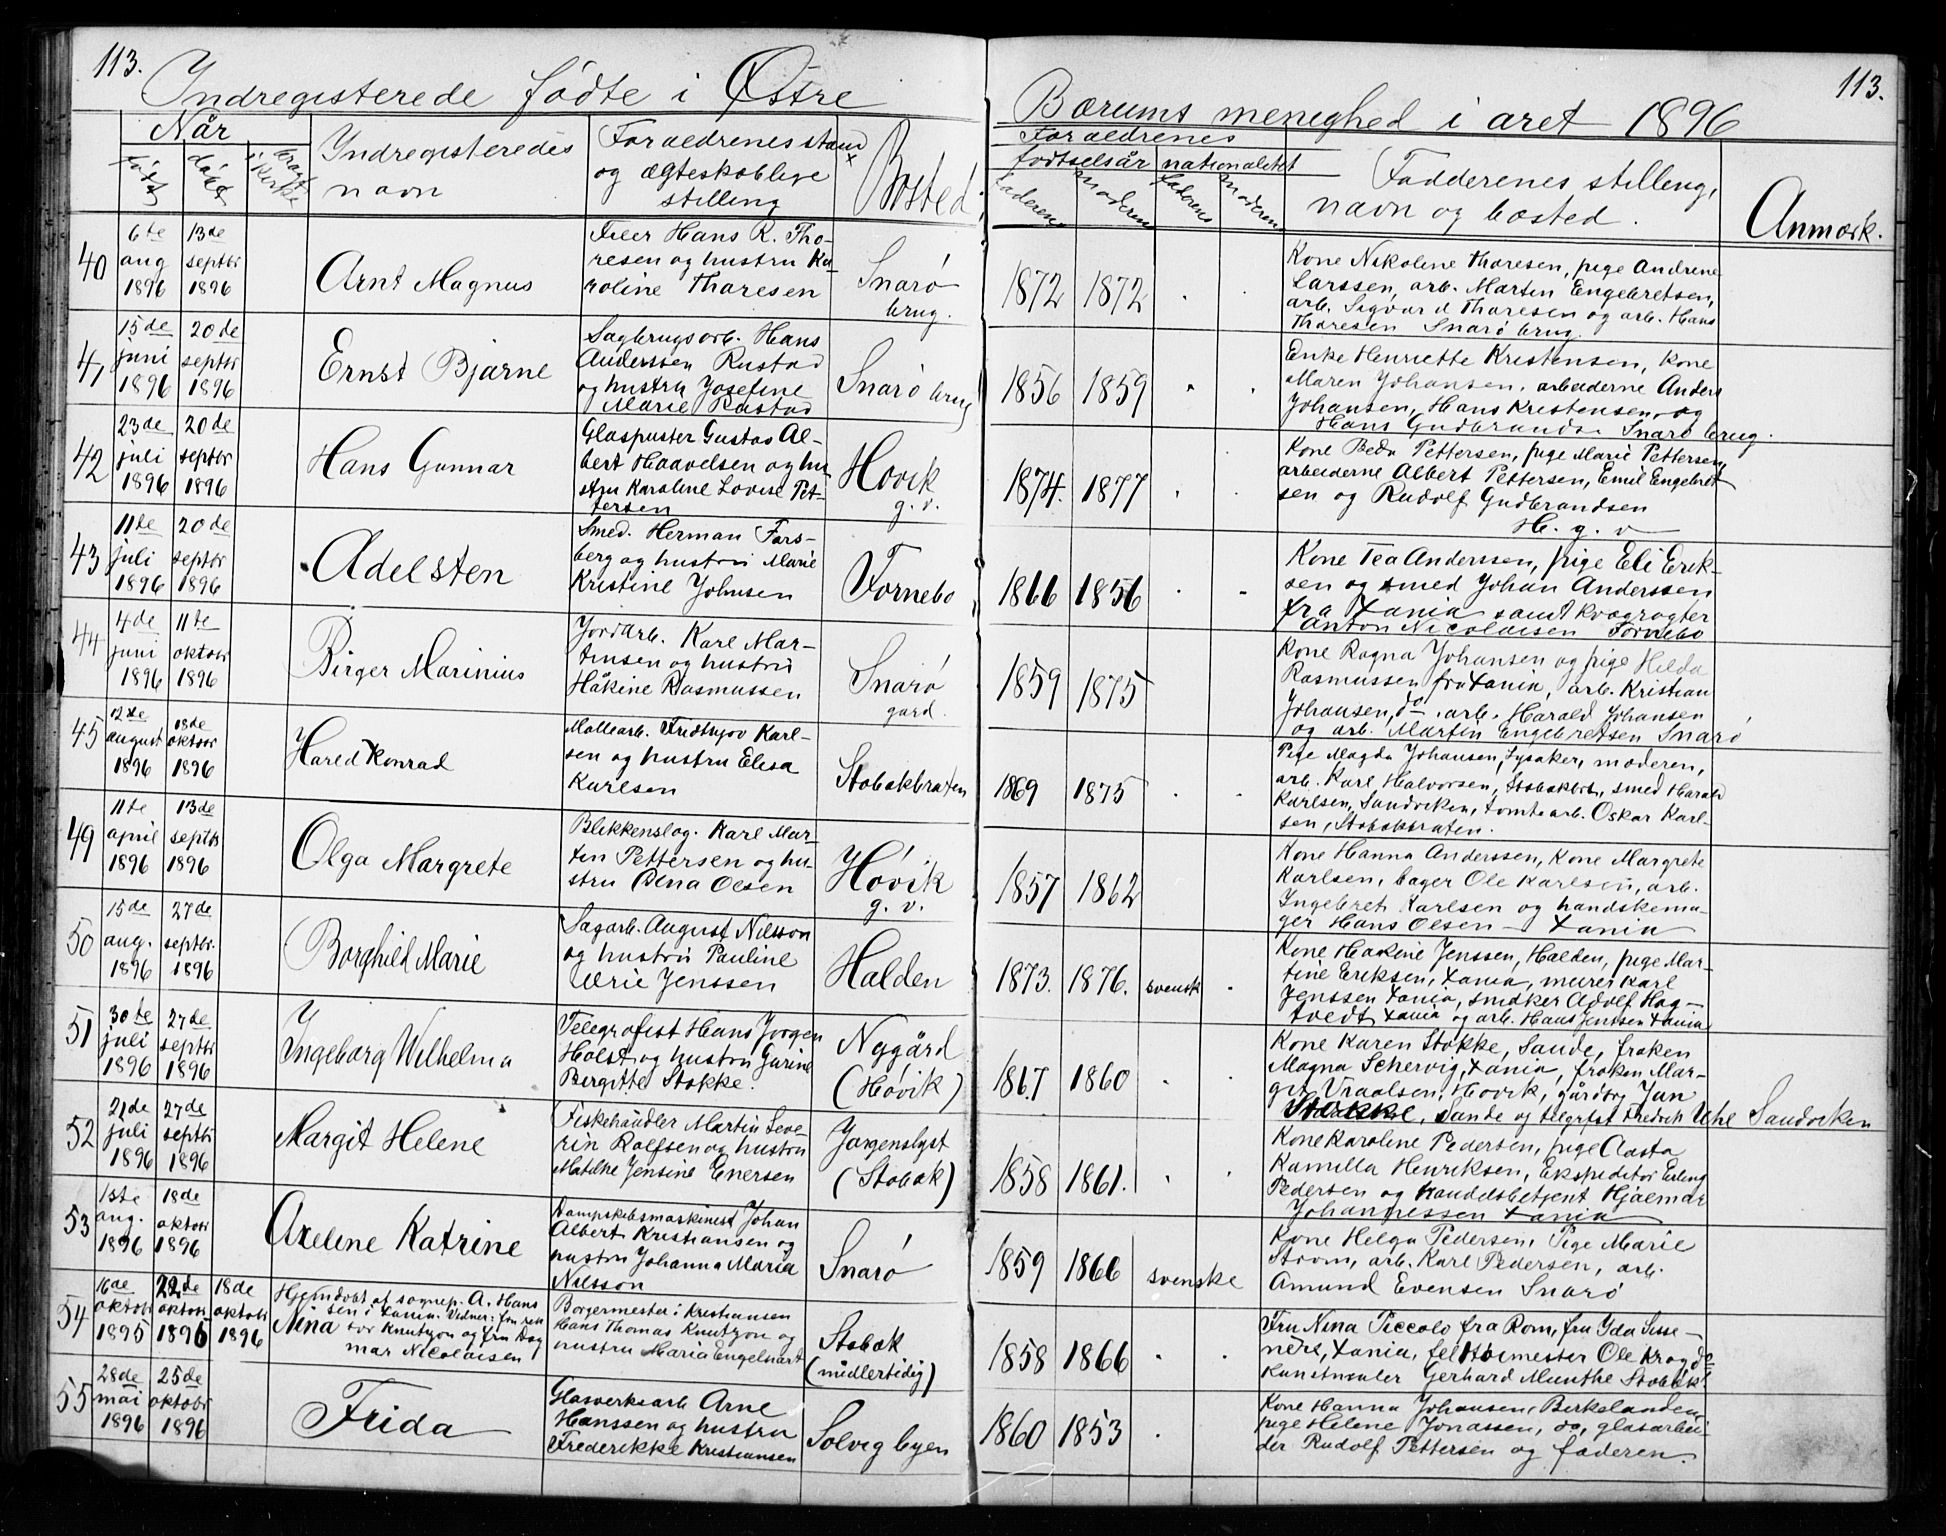 113.
Indregisterede fødte i Østre
Bærums menighed i året 1896
113.
Når
født
døbt
bragt
i kirke
Indregisteredes
navn
Forældrenes stand
og ægteskablige
stilling
Bosted
Forældrenes
fødselsår nationalitet
faderens
moderens
faderens
moderens
Fadderenes stilling,
navn og bosted.
Anmærk.
40
6te
aug
1896
13de
septbr
1896
Arnt Magnus
Filer Hans R. Tho-
resen og hustru Ka-
roline Thoresen
Snarø
brug.
1872 1872
Kone Nikoline Thoresen, pige Andrene
Larssen, arb. Martin Engebretsen,
arb. Sigvard Thoresen og arb. Hans
Thoresen Snarø brug.
41
15de
juni
1896
20de
septbr
1896
Ernst Bjarne
Sagbrugsarb. Hans
Anderssen Rustad
og hustru Josefine
Marie Rustad
Snarø brug
1856 1859
Enke Henriette Kristensen, Kone
Maren Johansen, arbeiderne Anders
Johansen, Hans Kristensen og
Hans Gudbrands. Snarø brug.
42
23de
juli
1896
20de
septbr
1896
Hans Gunnar
Glaspuster Gustav Al-
bert Haavelsen og hu
stru Karoline Lovise Pet-
tersen
Høvik
g. v.
1874. 1877
Kone Beda Pettersen, pige Marie Pettersen,
arbeiderne Albert Pettersen, Emil Engebret
sen og Rudolf Gudbrandsen
H. g. v
43
11te
juli
1896
20de
septbr
1896
Adelsten
Smed. Herman Fors-
berg og hustru Marie
Kristine Johnsen
Fornebo
1866 1856
Kone Tea Anderssen, pige Eli Erik-
sen og smed Johan Anderssen
fra Xania samt kvægrøgter
Anton Nicolaisen Fornebo
44
4de
juni
1896
11te
oktobr
1896
Birger Marinius
Jordarb. Karl Mar-
tinsen og hustru
Håkine Rasmussen
Snarø
gård.
1859 1875
Kone Ragna Johansen og pige Hilda
Rasmussen fra Xania, arb. Kristian
Johansen, do. arb. Harald Johansen
og arb. Martin Engebretsen Snarø
45
12te
august
1896
18de
oktobr
1896
Harld Konrad
Møllearb. Fridthjov Karl-
sen og hustru Elisa
Karlsen
Stabækbraten
1869 1875
Pige Magda Johansen, Lysaker, moderen,
arb. Karl Halvorsen, Stabækbr., smed Harald
Karlsen, Sandviken, tomtearb. Oskar Karl-
sen, Stabækbraten.
49
11te
april
1896
13de
septbr
1896
Olga Margrete
Blikkenslag. Karl Mar-
tin Pettersen og hu-
stru Olsen
Høvik
g. v.
1857 1862
Kone Hanna Anderssen, Kone Margrete
Karlsen, bager Ole Karlsen, arb.
Ingebret Karlsen og handskema-
ger Hans Olsen - Xania
50
15de
aug.
1896
27de
septbr.
1896
Borghild Marie
Sagarb. August Nilsson
og hustru Pauline
Jenssen
Halden
1873. 1876. svensk
Kone Hakine Jenssen, Halden, pige Mar-
tine Eriksen, Xania, murer Karl
Jenssen Xania, snidker Adolf Hag-
tvedt Xania og arb. Hans Jentsen Xania
51
30te
juli
1896
27de
septbr
1896
Ingeborg Wilhelma
Telegrafist Hans Jørgen
Holst og hustru Gurine
Bergitte Stokke.
Nygård
(Høvik)
1867 1860
Kone Karen Stokke, Sande, frøken
Magna Schervig, Xania, frøken Mar-
git Vraalsen, Høvik, gårdbr. Jan
Stokke, Sande og telgrfst Fredrik Uhl Sandviken
52
21de
juli
1896
27de
septbr
1896
Margit Helene
Fiskehandler Martin Seve-
rin Rolfsen og hustru
Matilde Jensine Enersen
Jørgenslyst
(Stabæk)
1858 1861.
Kone Karoline Pedersen, pige Aasta
Kamilla Henriksen, Ekspeditør Erling
Pedersen og handelsbetjent Hjalmar
Johannessen Xania
53
1ste
aug.
1896
18de
oktobr
1896
Axeline Katrine
Dampskibsmaskinist Johan
Albert Kristiansen og
hustru Johanna Maria
Nilsson
Snarø
1859 1866 svenske
Kone Helga Pedersen, Pige Marie
Strøm, arb. Karl Pedersen, arb.
Amund Evensen Snarø
54
16de
oktobr
1895
22de
oktobr
1895
18de
oktobr
1896
Hjemdøbt af sognep. A. Hans
sen i Xania. Vidner: fru rek
Nina tor Knutzon og fru Dag
mar Nicolaisen
Borgermester i Kristiansen
Hans Thomas Knutzon og
hustru Maria Engelhart
Stabæk
(midlertidig)
1858 1866
Fru Nina Piccolo fra Rom, fru Yda Sisse-
ners, Xania, Ole Krag do
Kunstmaler Gerhard Munthe Stabæk.
55
28de
mai
1896
25de
oktobr
1896
Frida
Glasverksarb Arne
Hanssen og hustru
Frederikke Kristiansen
Solvig byen
1860 1853
Kone Hanna Johansen, Birkelanden,
pige Helene Jonassen, do, glasarbei-
der Rudolf Pettersen og faderen.